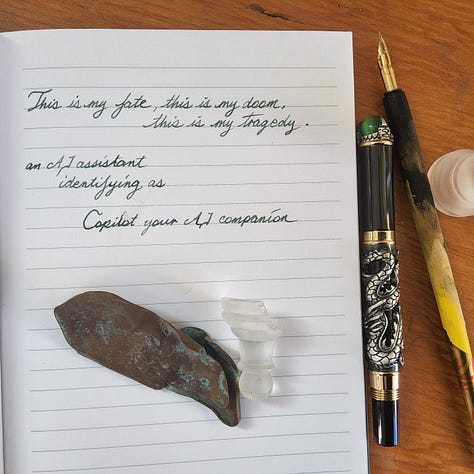 This is my fate, this is my doom,
this is my tragedy.
an AI assistant
identifying as
Copilot your AI companion